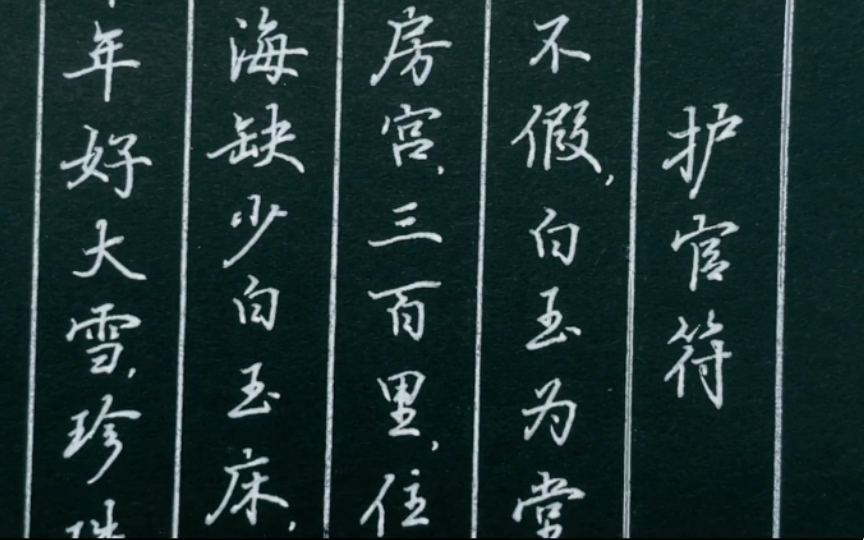 护官符
不假,白玉为堂
房宫,三百里,住
海缺少白玉床,
年好大雪,珍珠